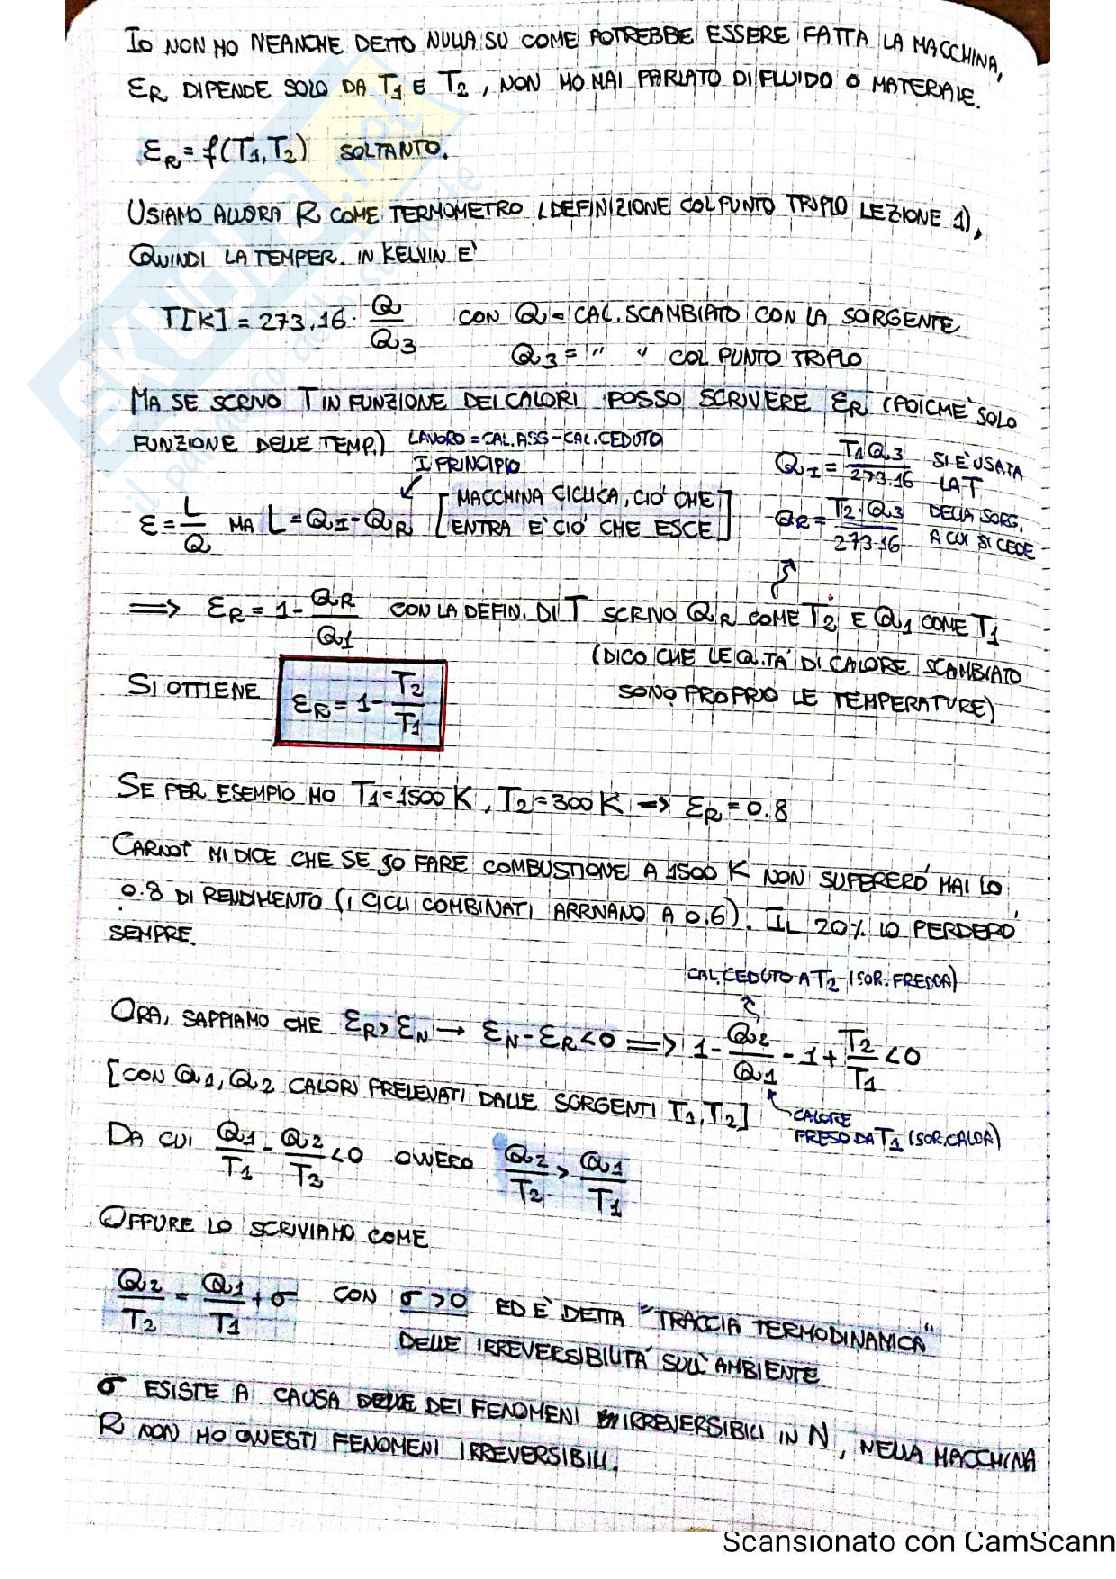 IO NON HO NEANCHE DETTO NULLA SU COME POTREBBE ESSERE FATTA LA MACCHINA,
εR DIPENDE SOLO DA T1 E T2, NON HO MAI PARLATO DI FLUIDO O MATERIALE.
εR = f(T1,T2) SOLTANTO.
USIAMO ALLORA R COME TERMOMETRO (DEFINIZIONE COL PUNTO TRIPLO LEZIONE 1),
QUINDI LA TEMPER. IN KELVIN E'
T[K] = 273.16 · Q/Q3 CON Q = CAL. SCAMBIATO CON LA SORGENTE
Q3 = " " COL PUNTO TRIPLO
MA SE SCRIVO T IN FUNZIONE DEI CALORI POSSO SCRIVERE εR (POICHE' SOLO
FUNZIONE DELLE TEMP.)
LAVORO = CAL.ASS - CAL.CEDUTO
I PRINCIPIO
ε = L/Q MA L = QI - QR [MACCHINA CICLICA, CIO' CHE
ENTRA E' CIO' CHE ESCE]
QI = T1 Q3/273.16 SI E' USATA
LA T
QR = T2·Q3/273.16 DELLA SORG.
A CUI SI CEDE
⟹ εR = 1 - QR/Q1 CON LA DEFIN. DI T SCRIVO QR COME T2 E Q1 COME T1
(DICO CHE LE Q.TA' DI CALORE SCAMBIATO
SONO PROPRIO LE TEMPERATURE)
SI OTTIENE εR = 1 - T2/T1
SE PER ESEMPIO HO T1 = 1500 K, T2 = 300 K → εR = 0.8
CARNOT MI DICE CHE SE SO FARE COMBUSTIONE A 1500 K NON SUPERERÓ MAI LO
0.8 DI RENDIMENTO (I CICLI COMBINATI ARRIVANO A 0.6). IL 20% LO PERDERÓ
SEMPRE.
CAL. CEDUTO A T2 (SOR. FREDDA)
ORA, SAPPIAMO CHE εR > εN → εN - εR < 0 ⟹ 1 - Q2/Q1 - 1 + T2/T1 < 0
[CON Q1, Q2 CALORI PRELEVATI DALLE SORGENTI T1, T2]
CALORE
PRESO DA T1 (SOR.CALDA)
DA CUI Q1/T1 - Q2/T2 < 0 OVVERO Q2/T2 > Q1/T1
OPPURE LO SCRIVIAMO COME
Q2/T2 = Q1/T1 + σ CON σ > 0 ED E' DETTA "TRACCIA TERMODINAMICA"
DELLE IRREVERSIBILITA' SULL'AMBIENTE
σ ESISTE A CAUSA DEI FENOMENI IRREVERSIBILI IN N, NELLA MACCHINA
R NON HO QUESTI FENOMENI IRREVERSIBILI.
Scansionato con CamScann